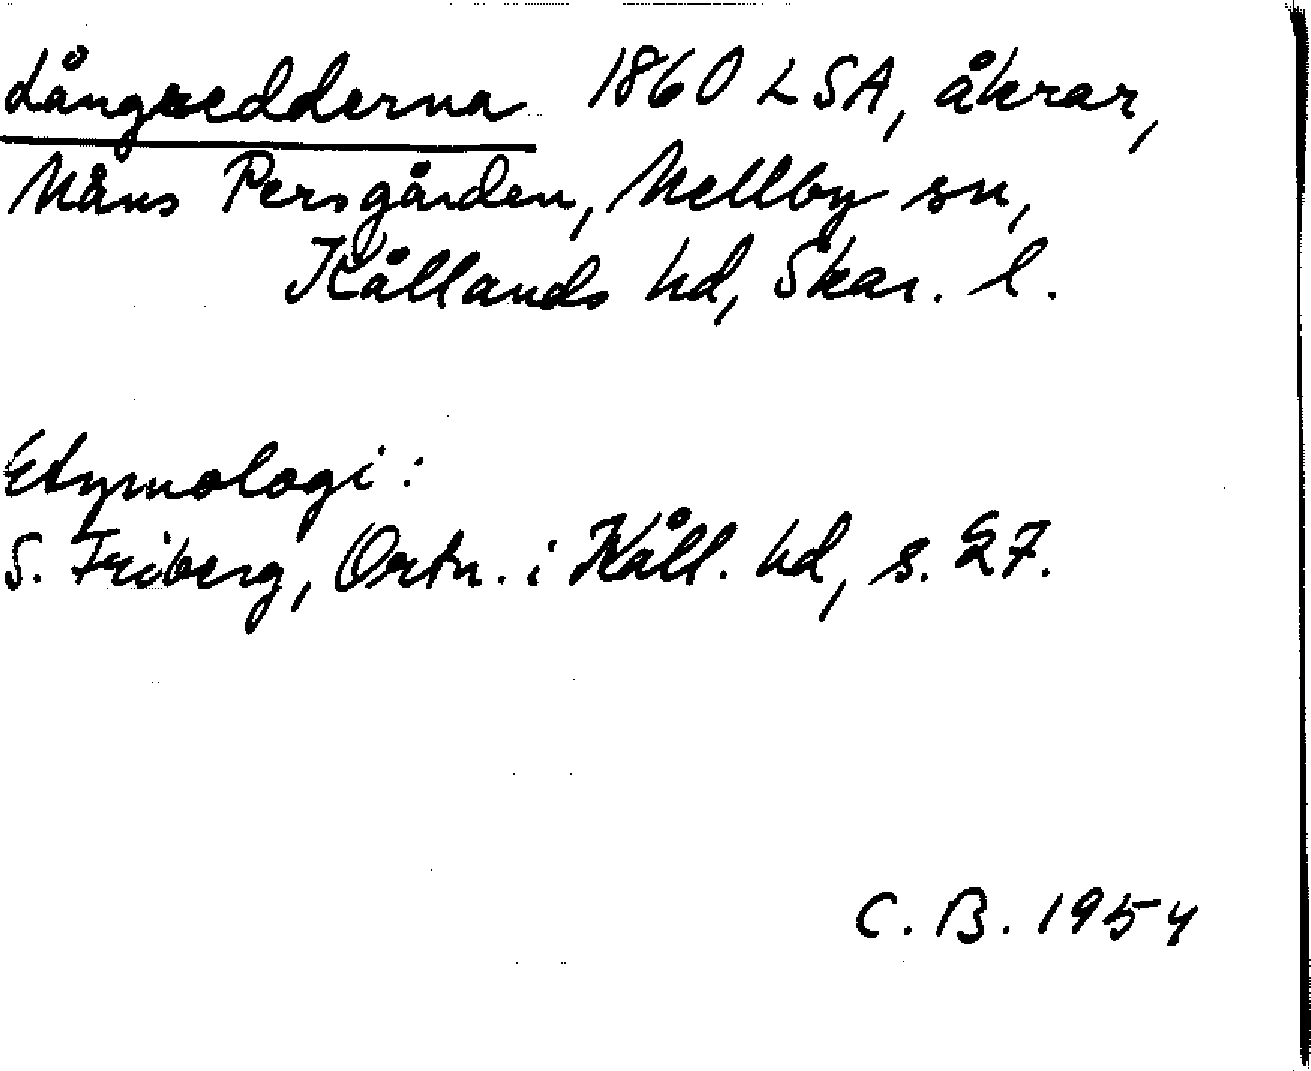 Långredderna 1860 LSA, åkrar,
Måns Persgården, Mellby sn,
Kållands hd, Skar. l.
Etymologi:
S. Friberg, Ortn. i Kåll. hd, s. 27.
C. B. 1954